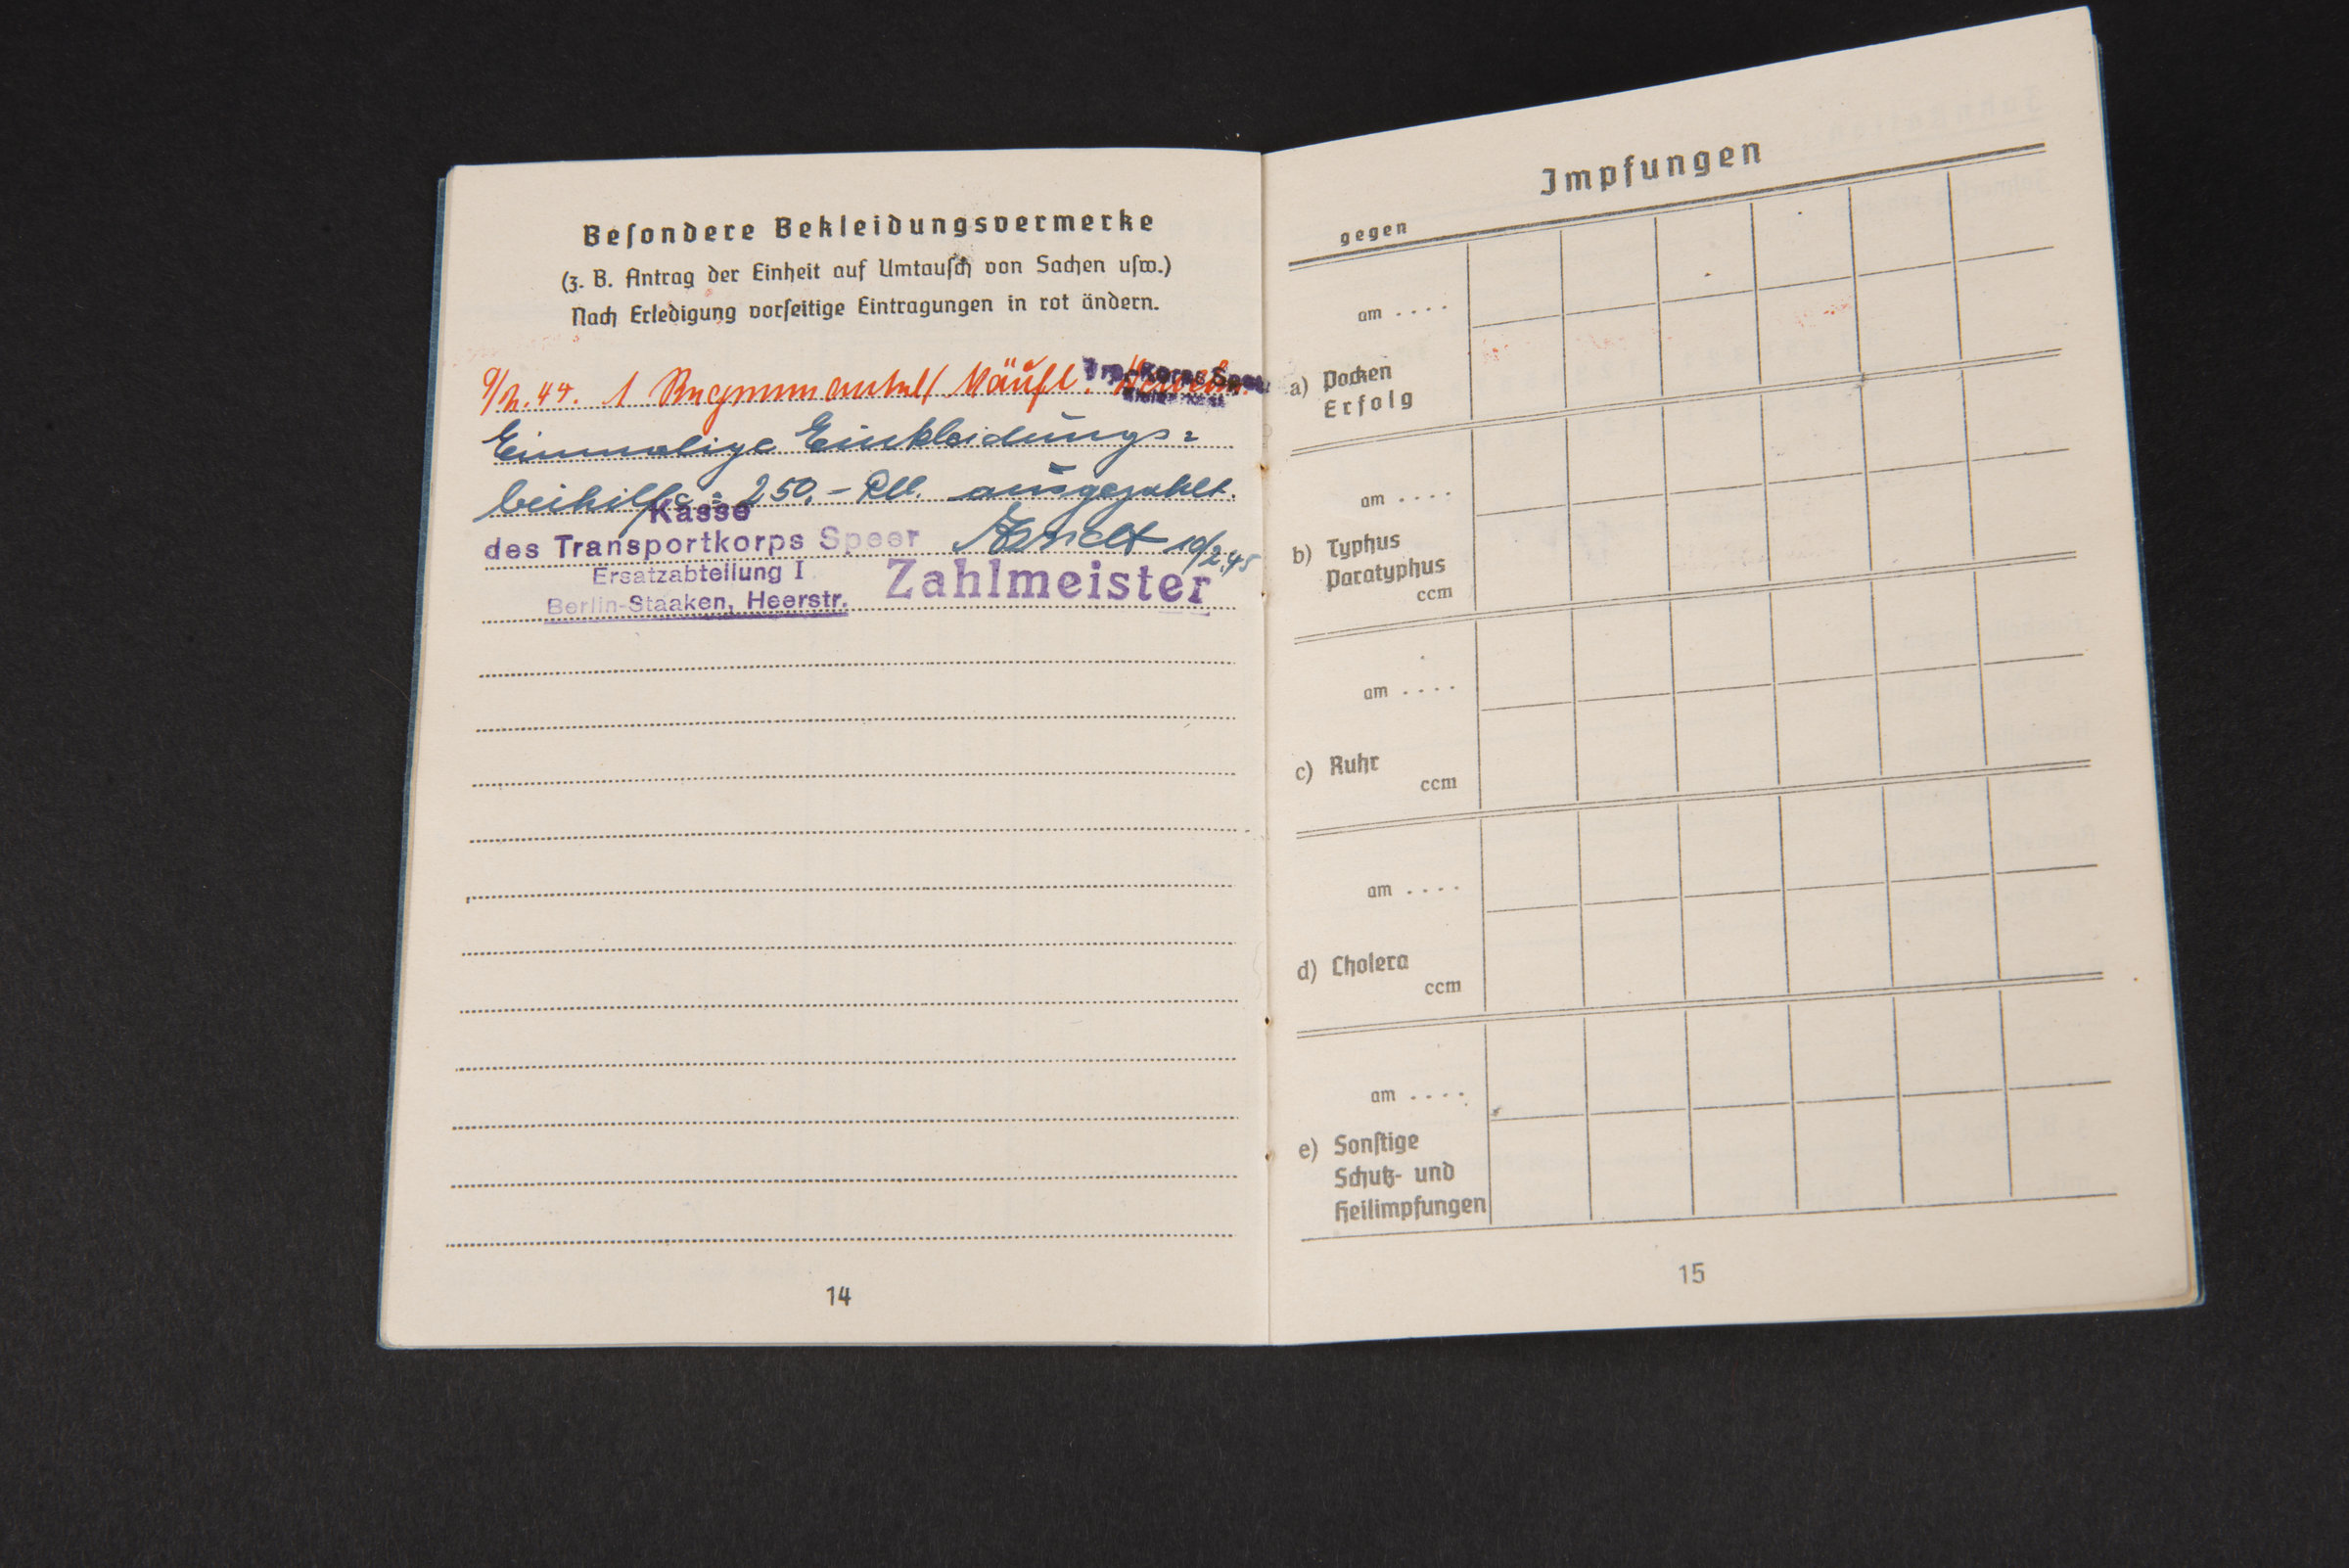 Besondere Bekleidungsvermerke
(z. B. Antrag der Einheit auf Umtausch von Sachen usw.)
Nach Erledigung vorseitige Eintragungen in rot ändern.
1 Regenmantel käufl.
Trsp.-Korps Speer
Einmalige Einkleidungs=
beihilfe = 250,- RM. ausgezahlt.
Kasse
des Transportkorps Speer
10/2.45
Ersatzabteilung I
Zahlmeister
Berlin-Staaken, Heerstr.
14
Impfungen
gegen
am ....
a) Pocken
Erfolg
am ....
b) Typhus
Paratyphus
ccm
am ....
c) Ruhr
ccm
am ....
d) Cholera
ccm
am ....
e) Sonstige
Schutz- und
Heilimpfungen
15